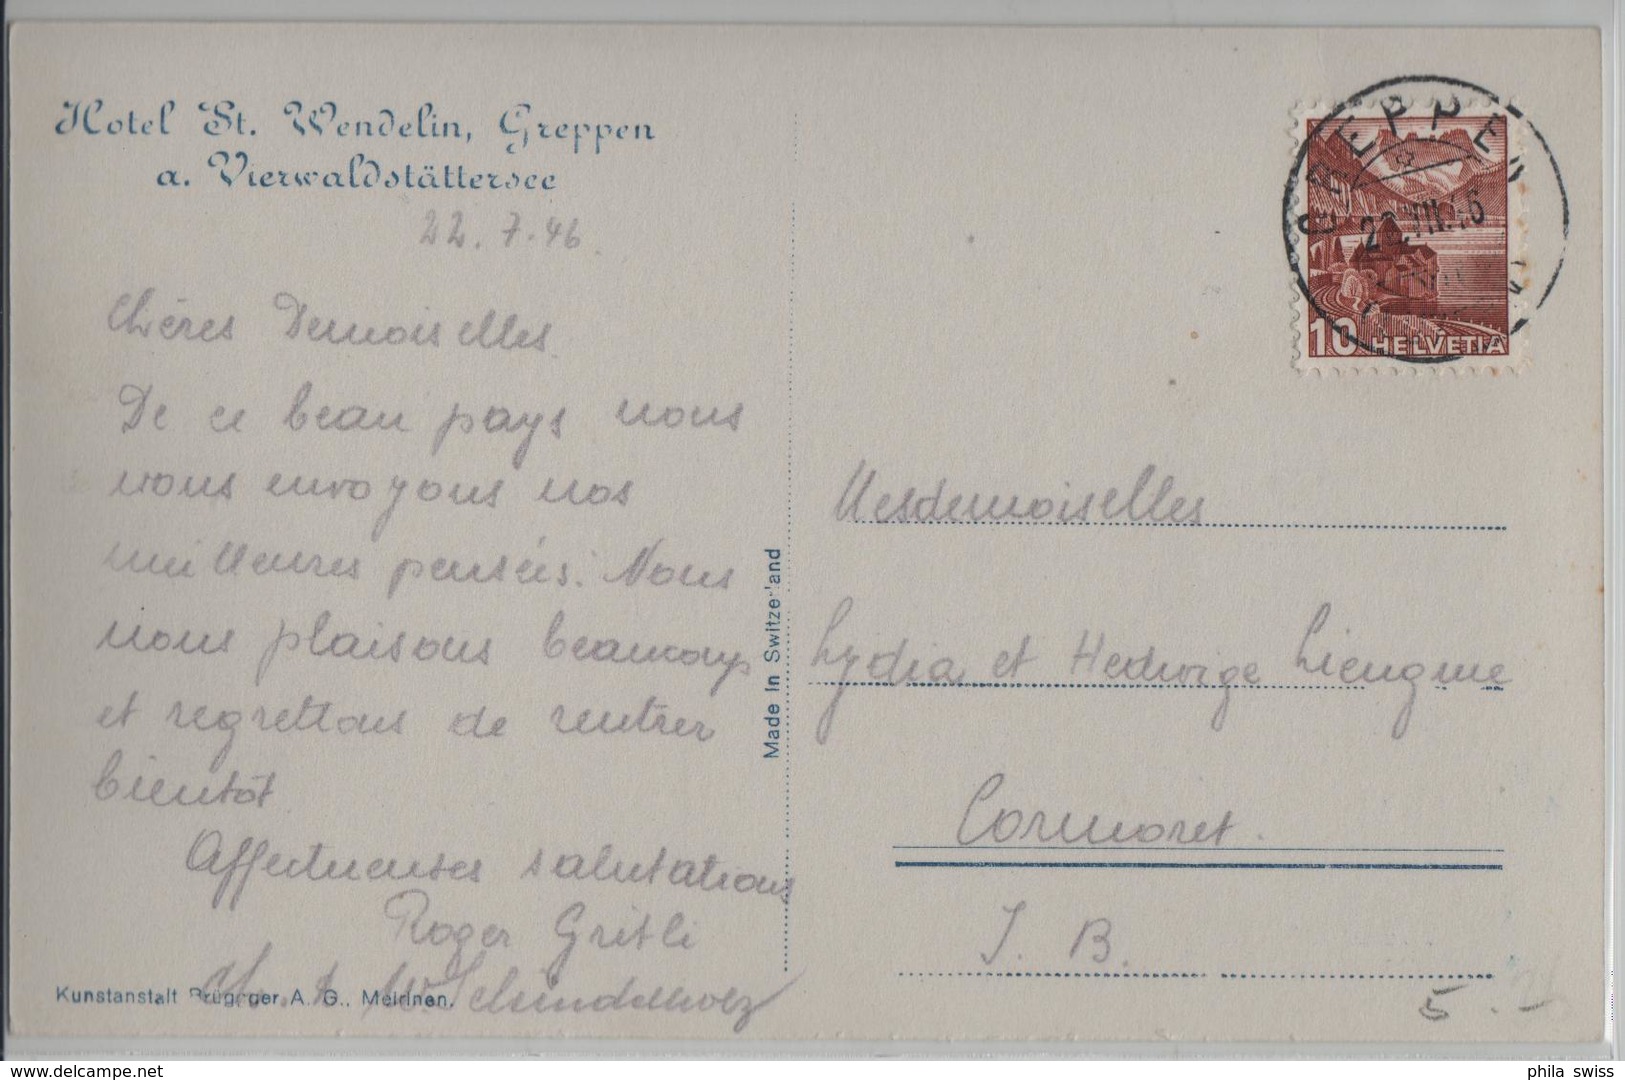 Hotel St. Wendelin, Greppen
a. Vierwaldstättersee
22.7.46
Chères Demoiselles.
De ce beau pays nous
vous envoyons nos
meilleures pensées. Nous
nous plaisons beaucoup
et regrettons de rentrer
bientôt
Affectueuses salutations
Roger Gritli
Schindelholz
Kunstanstalt Brügger A. G., Meirinen.
Made in Switzerland
GREPPEN
VII.46
10 HELVETIA
Mesdemoiselles
Lydia et Hedwige Liengme
Cormoret.
J. B.
5.-
delcampe.net
phila_swiss